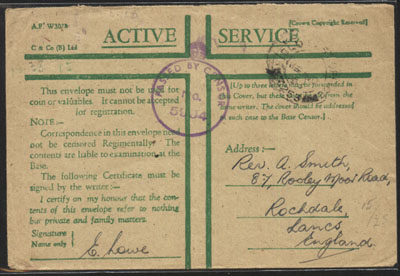 A.F. W3078
[Crown Copyright Reserved]
C & Co (B) Ltd
ACTIVE SERVICE
This envelope must not be used for
coin or valuables. It cannot be accepted
for registration.
NOTE:-
Correspondence in this envelope need
not be censored Regimentally. The
contents are liable to examination at the
Base.
The following Certificate must be
signed by the writer:-
I certify on my honour that the con-
tents of this envelope refer to nothing
but private and family matters.
Signature
Name only
E. Lowe
PASSED BY CENSOR
No.
5504
[Up to three letters may be forwarded in
Cover, but these must be from the
same writer. The cover should be addressed
in such case to the Base Censor.]
Address:-
Rev. A. Smith,
87, Rooley Moor Road,
Rochdale,
Lancs
England.